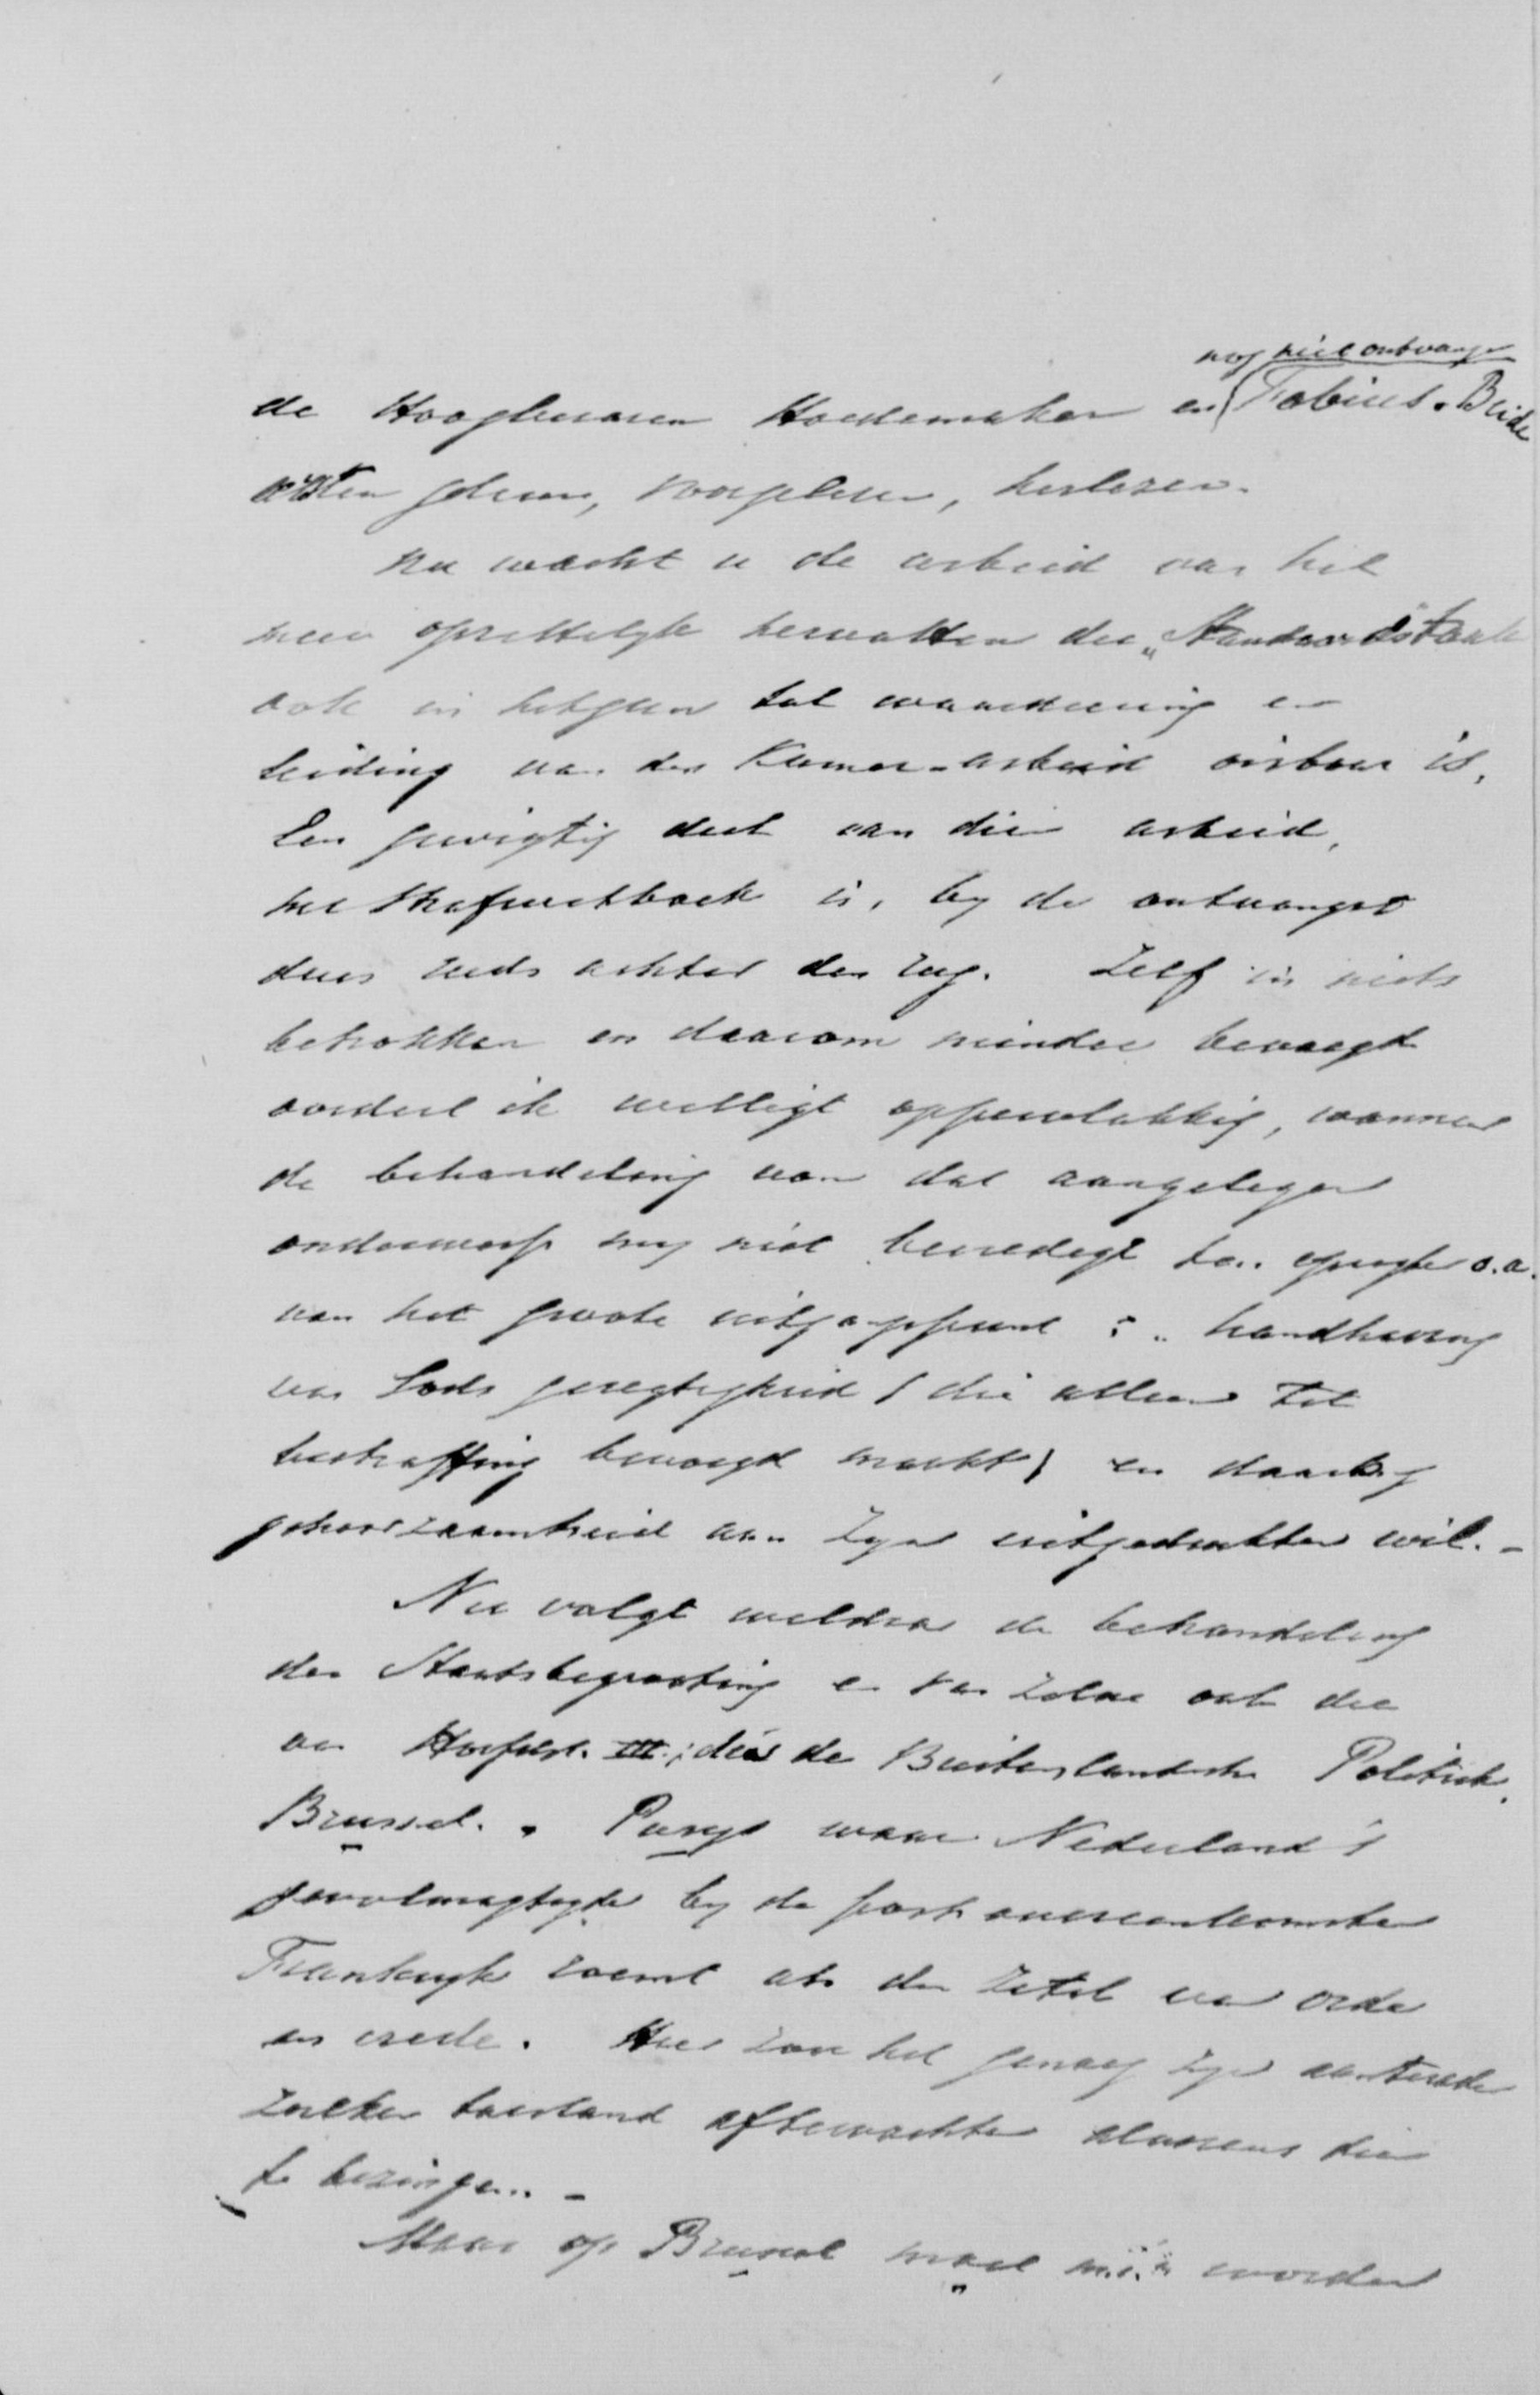 nog niet ontvangen
de Hoogleeraren Hoedemaker en Fabius. Beide
gelezen, voorgelezen, herlezen.
Nu wacht u de arbeid van het
meer opzettelijk hervatten der „Standaardstaak
ook in hetgeen tot waardeering en
leiding van den Kamer-arbeid oirbaar is.
Een gewigtig deel van dien arbeid,
het Strafwetboek is, by de ontvangst
dezes reeds achter den rug. Zelf in niets
betrokken en daarom minder bevoegd
oordeel ik welligt oppervlakkig, wanneer
de behandeling van dat aangelegen
onderwerp my niet bevredigt ten opzigte o.a.
van het groote uitgangspunt: „handhaving
van Gods geregtigheid (die alleen tot
bestraffing bevoegd maakt) en daarby
gehoorzaamheid aan Zyn uitgedrukten wil. –
Nu volgt weldra de behandeling
der Staatsbegrooting en van zelve ook die
van Hoofdst. III; dus de Buitenlandsche Politiek.
Brussel. Parys waar Nederland's
gevolmagtigde by de postovereenkomsten
Frankryk roemt als den zetel van orde
en vrede. Hier zou het genoeg zyn
zulken toestand aftewachten alvorens dien
te bezingen. –
Maar op Brussel moet worden